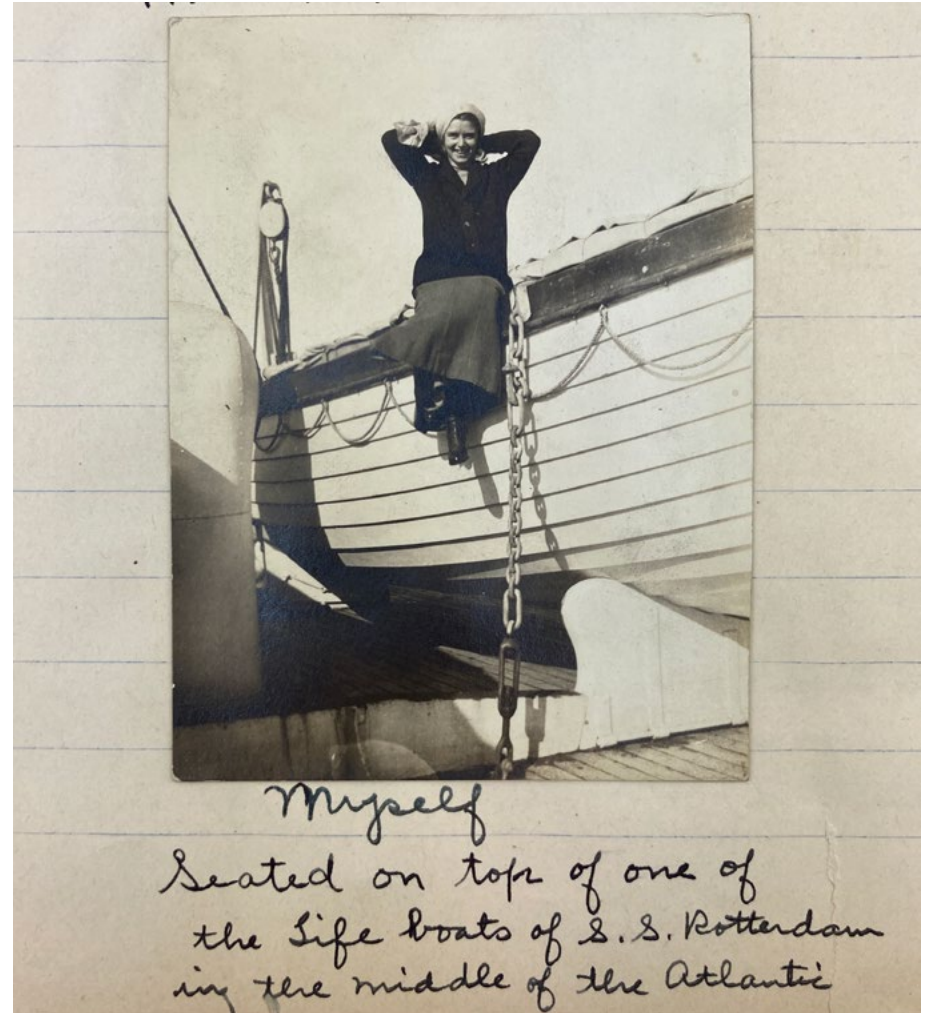 Myself
Seated on top of one of
the Life boats of S.S. Rotterdam
in the middle of the Atlantic